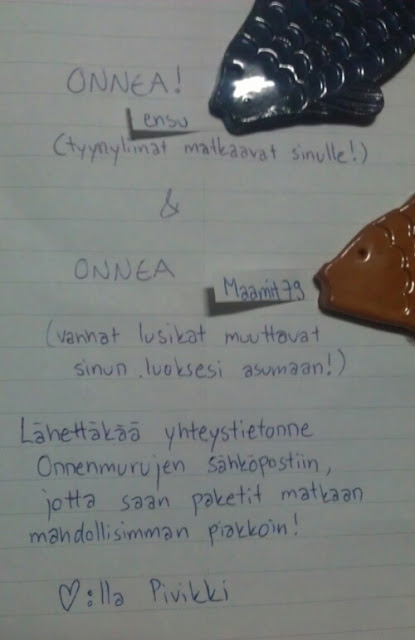 ONNEA!
Lensu
(tyynyliinat matkaavat sinulle!)
&
ONNEA
Maamit79
(vanhat lusikat muuttavat
sinun luoksesi asumaan!)
Lähettäkää yhteystietonne
Onnenmurujen sähköpostiin,
jotta saan paketit matkaan
mahdollisimman piakkoin!
♡:lla Pivikki